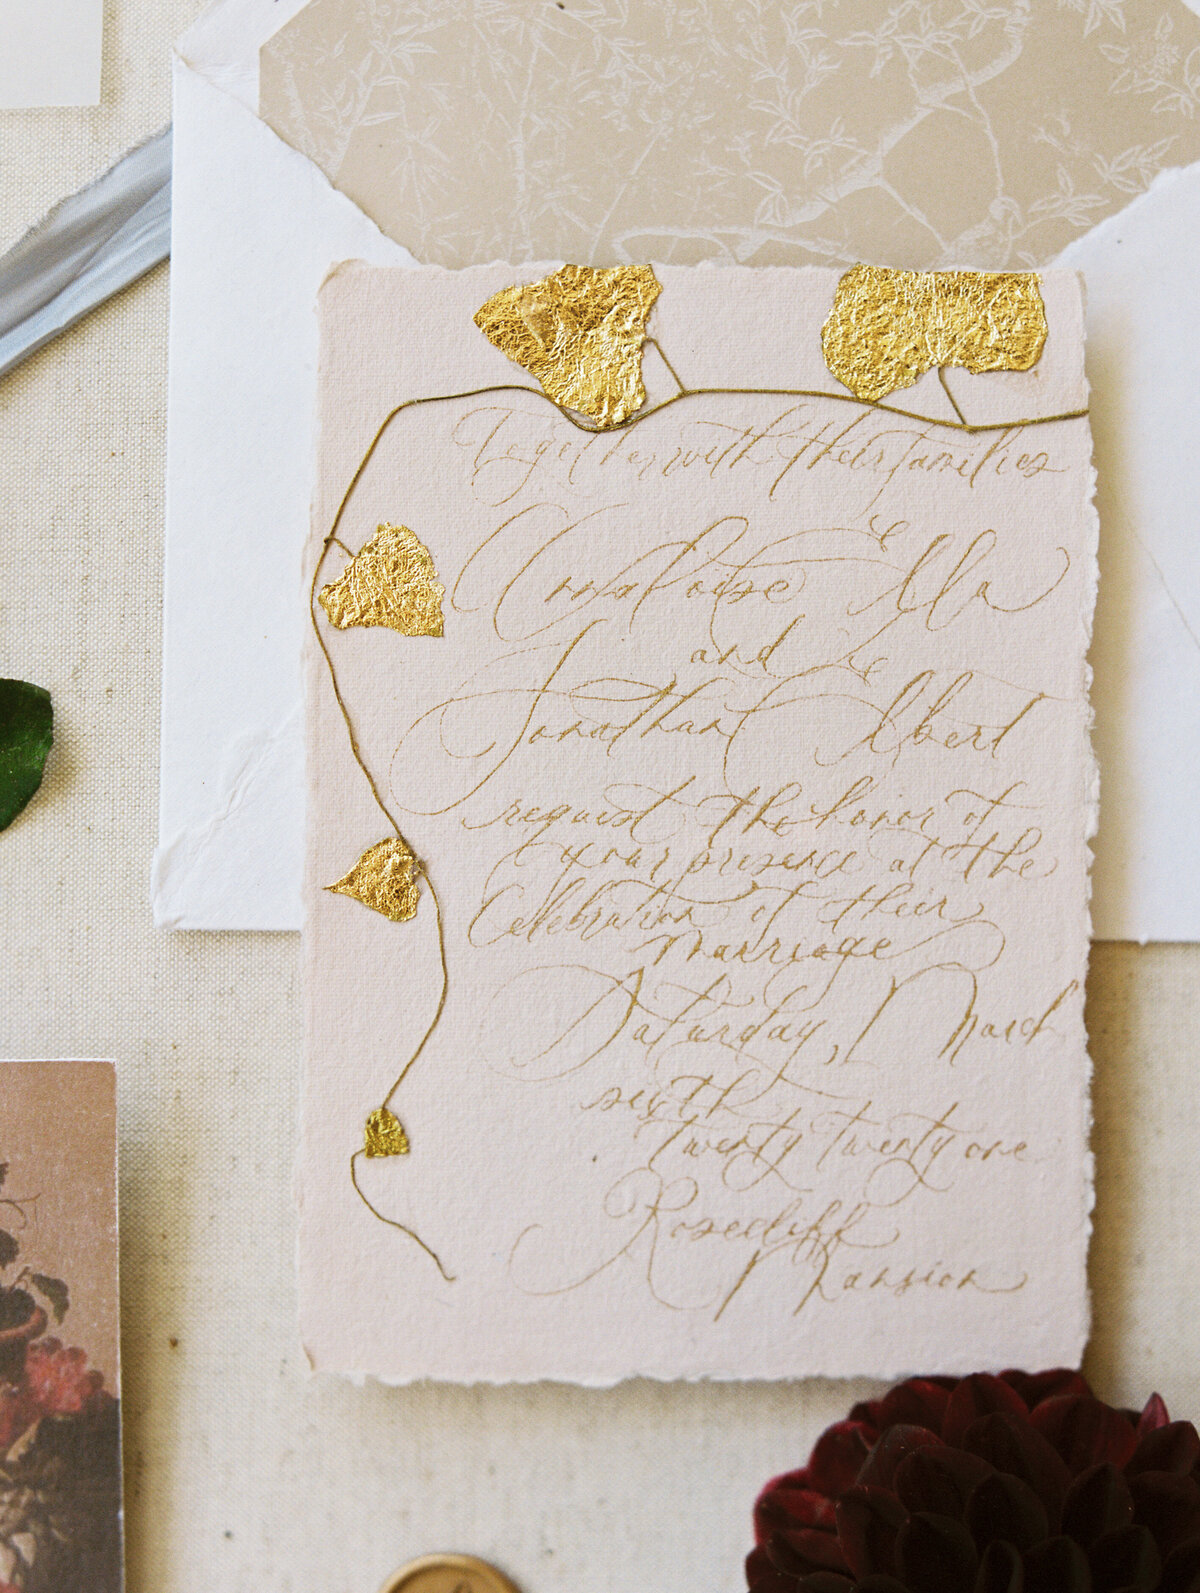 Together with their families
Annalouise Ella
and
Jonathan Albert
request the honor of
your presence at the
Celebration of their
Marriage
Saturday, March
sixth
twenty twenty one
Rosecliff
Mansion